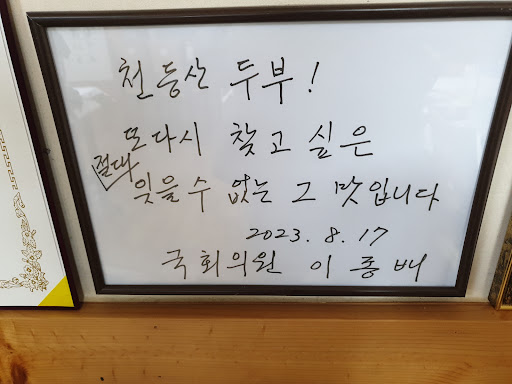 천등산 두부!
또다시 찾고 싶은
절대
잊을 수 없는 그 맛입니다
2023. 8. 17
국회의원 이종배